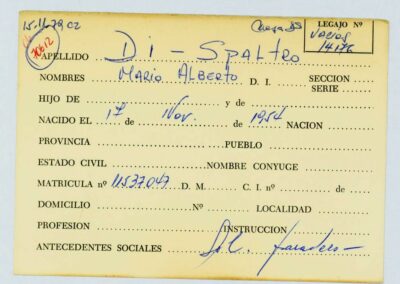 15.11.78.02
LEGAJO Nº
Varios
14176
70612
APELLIDO Di - Spaltro
NOMBRES Mario Alberto D. I. SECCION
SERIE
HIJO DE y de
NACIDO EL 17 de Nov. de 1954 NACION
PROVINCIA PUEBLO
ESTADO CIVIL NOMBRE CONYUGE
MATRICULA nº 11537.047 D. M. C. I. nº de
DOMICILIO Nº LOCALIDAD
PROFESION INSTRUCCION
ANTECEDENTES SOCIALES Sol. paradero